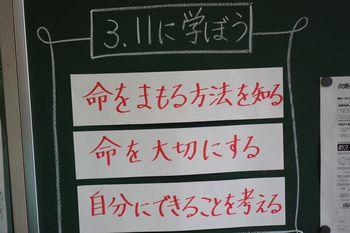 3.11に学ぼう
命をまもる方法を知る
命を大切にする
自分にできることを考える